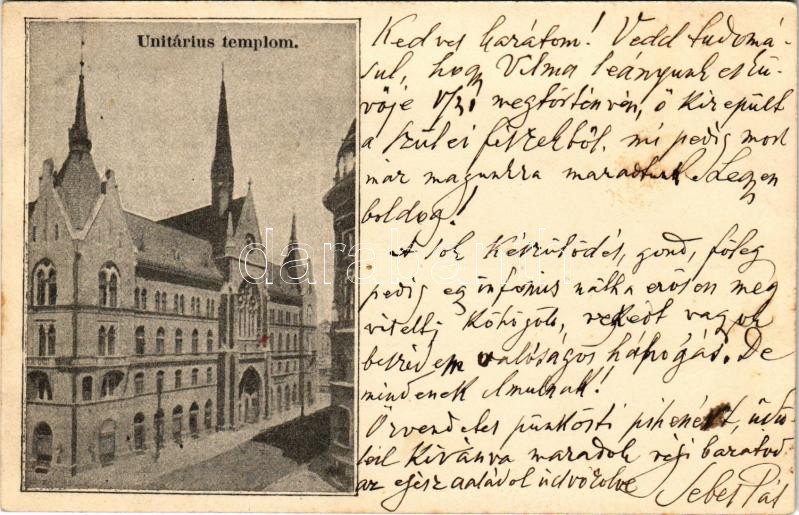 Unitárius templom.
Kedves barátom! Vedd tudomá-
sul, hogy Vilma leányunk eskü-
vője megtörténvén, ő kirepült
a szülei fészekből, mi pedig most
már magunkra maradtunk. Legyen
boldog!
A sok készülődés, gond, főleg
pedig egy nátha erősen meg
viselt; köhögök, rekedt vagyok
beszédem valóságos hápogás. De
mindenek elmulnak!
Örvendetes pünkösti pihenést, üdü-
lést kívánva maradok régi barátod
az egész családot üdvözölve Sebes Pál
darabanth